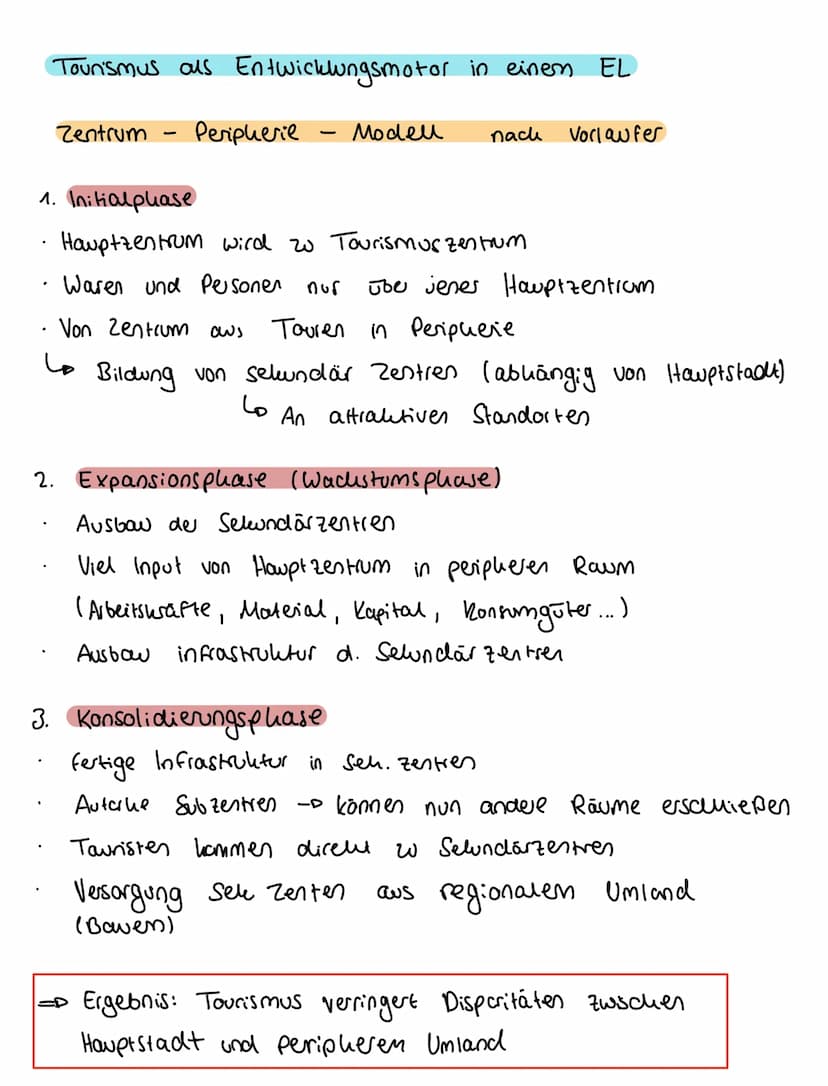 Tourismus als Entwicklungsmotor in einem EL
Zentrum - Peripherie - Modell nach Vorlaufer
1. Initialphase
· Hauptzentrum wird zu Tourismuszentrum
· Waren und Personen nur über jenes Hauptzentrum
· Von Zentrum aus Touren in Peripherie
↳ Bildung von sekundär Zentren (abhängig von Hauptstadt)
↳ An attraktiven Standorten
2. Expansionsphase (Wachstumsphase)
· Ausbau der Sekundärzentren
· Viel Input von Hauptzentrum in peripheren Raum
(Arbeitskräfte, Material, Kapital, Konsumgüter...)
· Ausbau infrastruktur d. Sekundärzentren
3. Konsolidierungsphase
· fertige Infrastruktur in sek. zentren
· Autarke Subzentren → können nun andere Räume erschließen
· Touristen kommen direkt zu Sekundärzentren
· Versorgung Sek Zenten aus regionalem Umland
(Bauern)
⇒ Ergebnis: Tourismus verringert Disparitäten zwischen
Hauptstadt und peripherem Umland